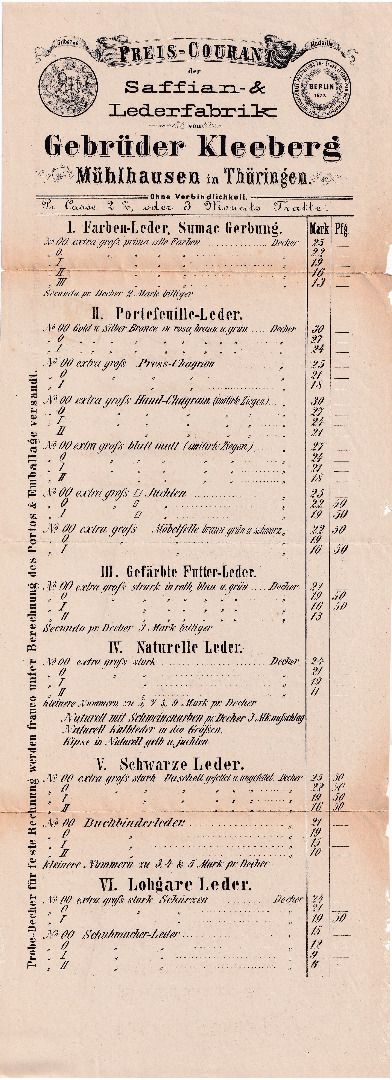 PREIS-COURANT
der
Saffian- &
Lederfabrik
von
Gebrüder Kleeberg
Mühlhausen in Thüringen.
Ohne Verbindlichkeit.
BERLIN
Medaille
Pr. Cassa 2 %, oder 3 Monats Tratte.
I. Farben-Leder, Sumac Gerbung. Mark Pfg
No 00 extra groß prima alle Farben Decher 25 —
O. 22 —
I 19 —
II 16 —
III 13 —
Secunda pr Decher 2 Mark billiger
II. Portefeuille-Leder.
No 00 Gold u. Silber Bronce in rosa, braun u. grün Decher 30 —
O 27
I 24 —
No 00 extra groß Press-Chagrin 25 —
O 21 —
I 18 —
No 00 extra groß Hand-Chagrin (amtirte Ziegen) 30
O 27
I 24 —
II 21 —
No 00 extra groß blatt matt (amtirte Ziegen) 27
O 24
I 21 —
II 18 —
No 00 extra groß Juchten 25 —
O 22 50
I 19 50
No 00 extra groß Möbelfelle braun grün u schwarz 22 50
O 19 —
I 16 50
III. Gefärbte Futter-Leder.
No 00 extra groß stark in roth, blau u. grün Decher 21 —
O 19 50
I 16 50
II 13 —
Secunda pr Decher 3 Mark billiger
IV. Naturelle Leder.
No 00 extra groß stark Decher 24 —
O 21
I 19
II 11
kleinere Nummern zu 5, 7 & 9 Mark pr Decher
Naturell mit Schweinsnarben pr. Decher 3 Mk. aufschlag
Naturell Kalbleder in den Größen.
Kipse in Naturell gelb u juchten
V. Schwarze Leder.
No 00 extra groß stark Decher 25 50
O 22 50
I 19 50
II 16 50
No 00 Buchbinderleder 21
O 19
I 15 —
II 10 —
kleinere Nummern zu 3, 4 & 5 Mark pr Decher
VI. Lohgare Leder.
No 00 extra groß stark Schürzen Decher 24 —
O 21
I 19 50
No 00 Schuhmacher-Leder 15 —
O 12 —
I 9 —
II 8 —
Probe-Decher für feste Rechnung werden franco unter Berechnung des Portos & Emballage versandt.